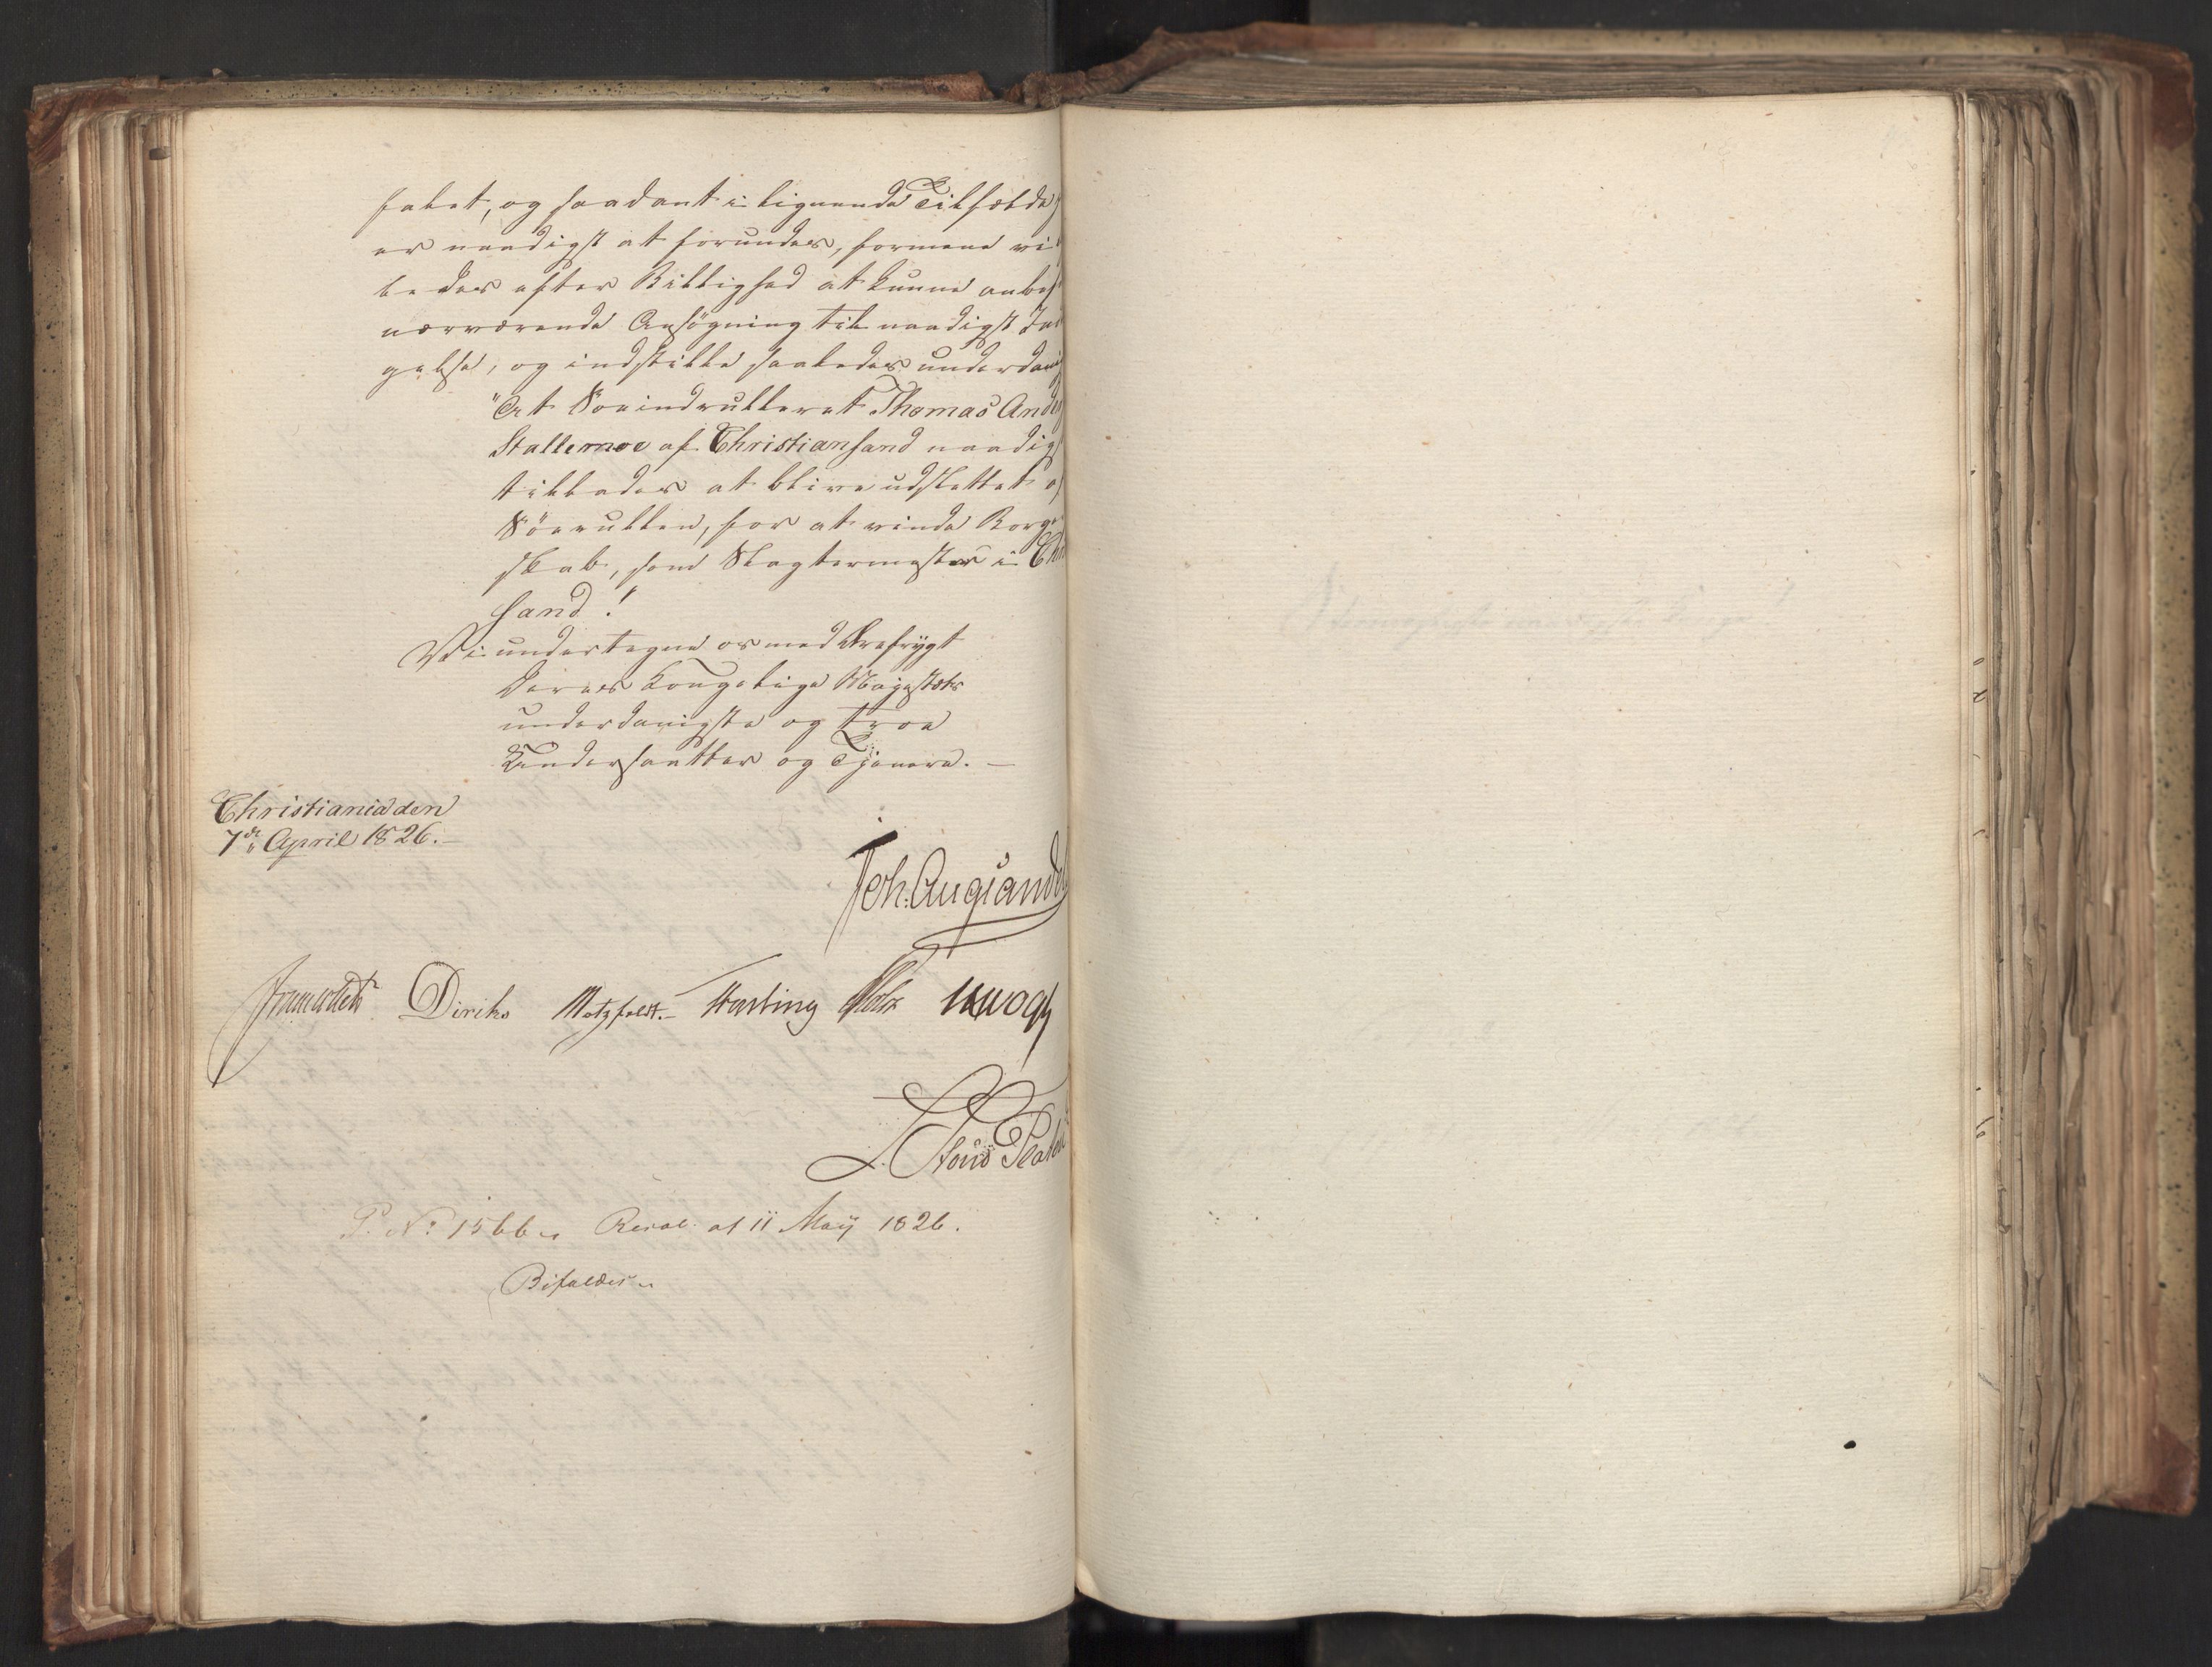 falet, og saadant i lignende Tilfælde
er naadigst at forundes, formene vi
ledes efter Billighed at kunne anbef
nærværende Ansögning til naadigst Ind
gelse, og indstille saaledes underdani
"At Söeindrulleret Thomas Ander
Stallemoe af Christiansand naadigs
tillades at blive udslettet af
Söerullen, for at vinde Borger
skab, som Slagtermester i Chri
sand!
Vi undertegne os med Ærefrygt
Deres Kongelige Majestæts
underdanigste og troe
Undersaatter og Tjenere. —
Christiania den
7de April 1826. —
Joh. Aug: Sande
Jonas Collett Diriks Motzfeldt. — Fasting Holst UWogh
L. Stoud Platou
P. No. 1566 Resol. af 11 Maÿ 1826.
Bifaldes